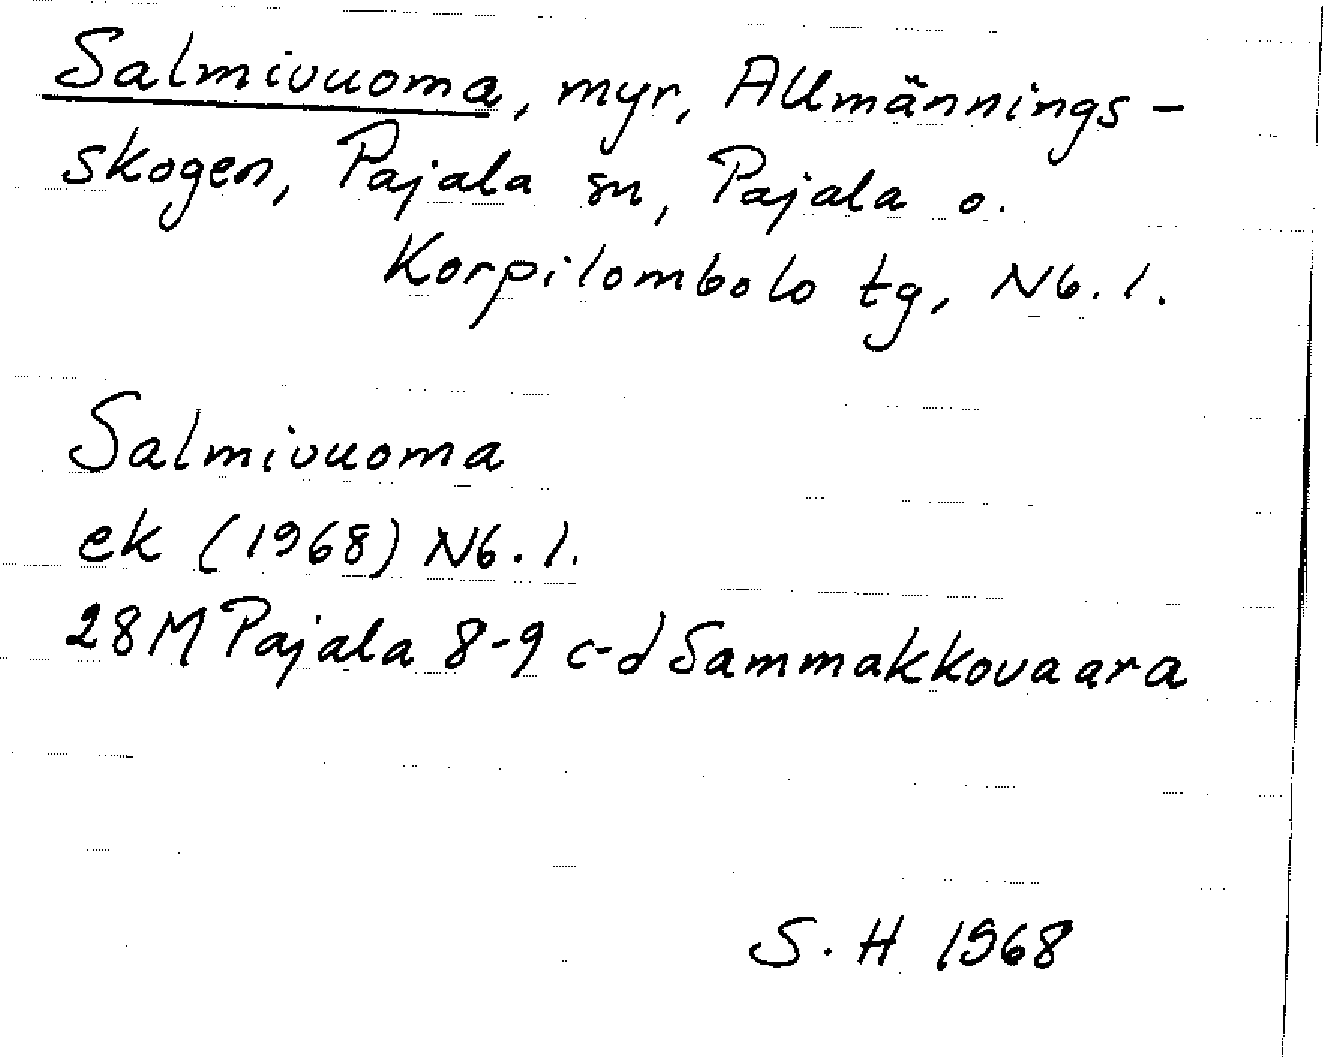 Salmivuoma, myr, Allmännings-
skogen, Pajala sn, Pajala o.
Korpilombolo tg, Nb. l.
Salmivuoma
ek (1968) Nb. l.
28M Pajala 8-9 c-d Sammakkovaara
S. H 1968